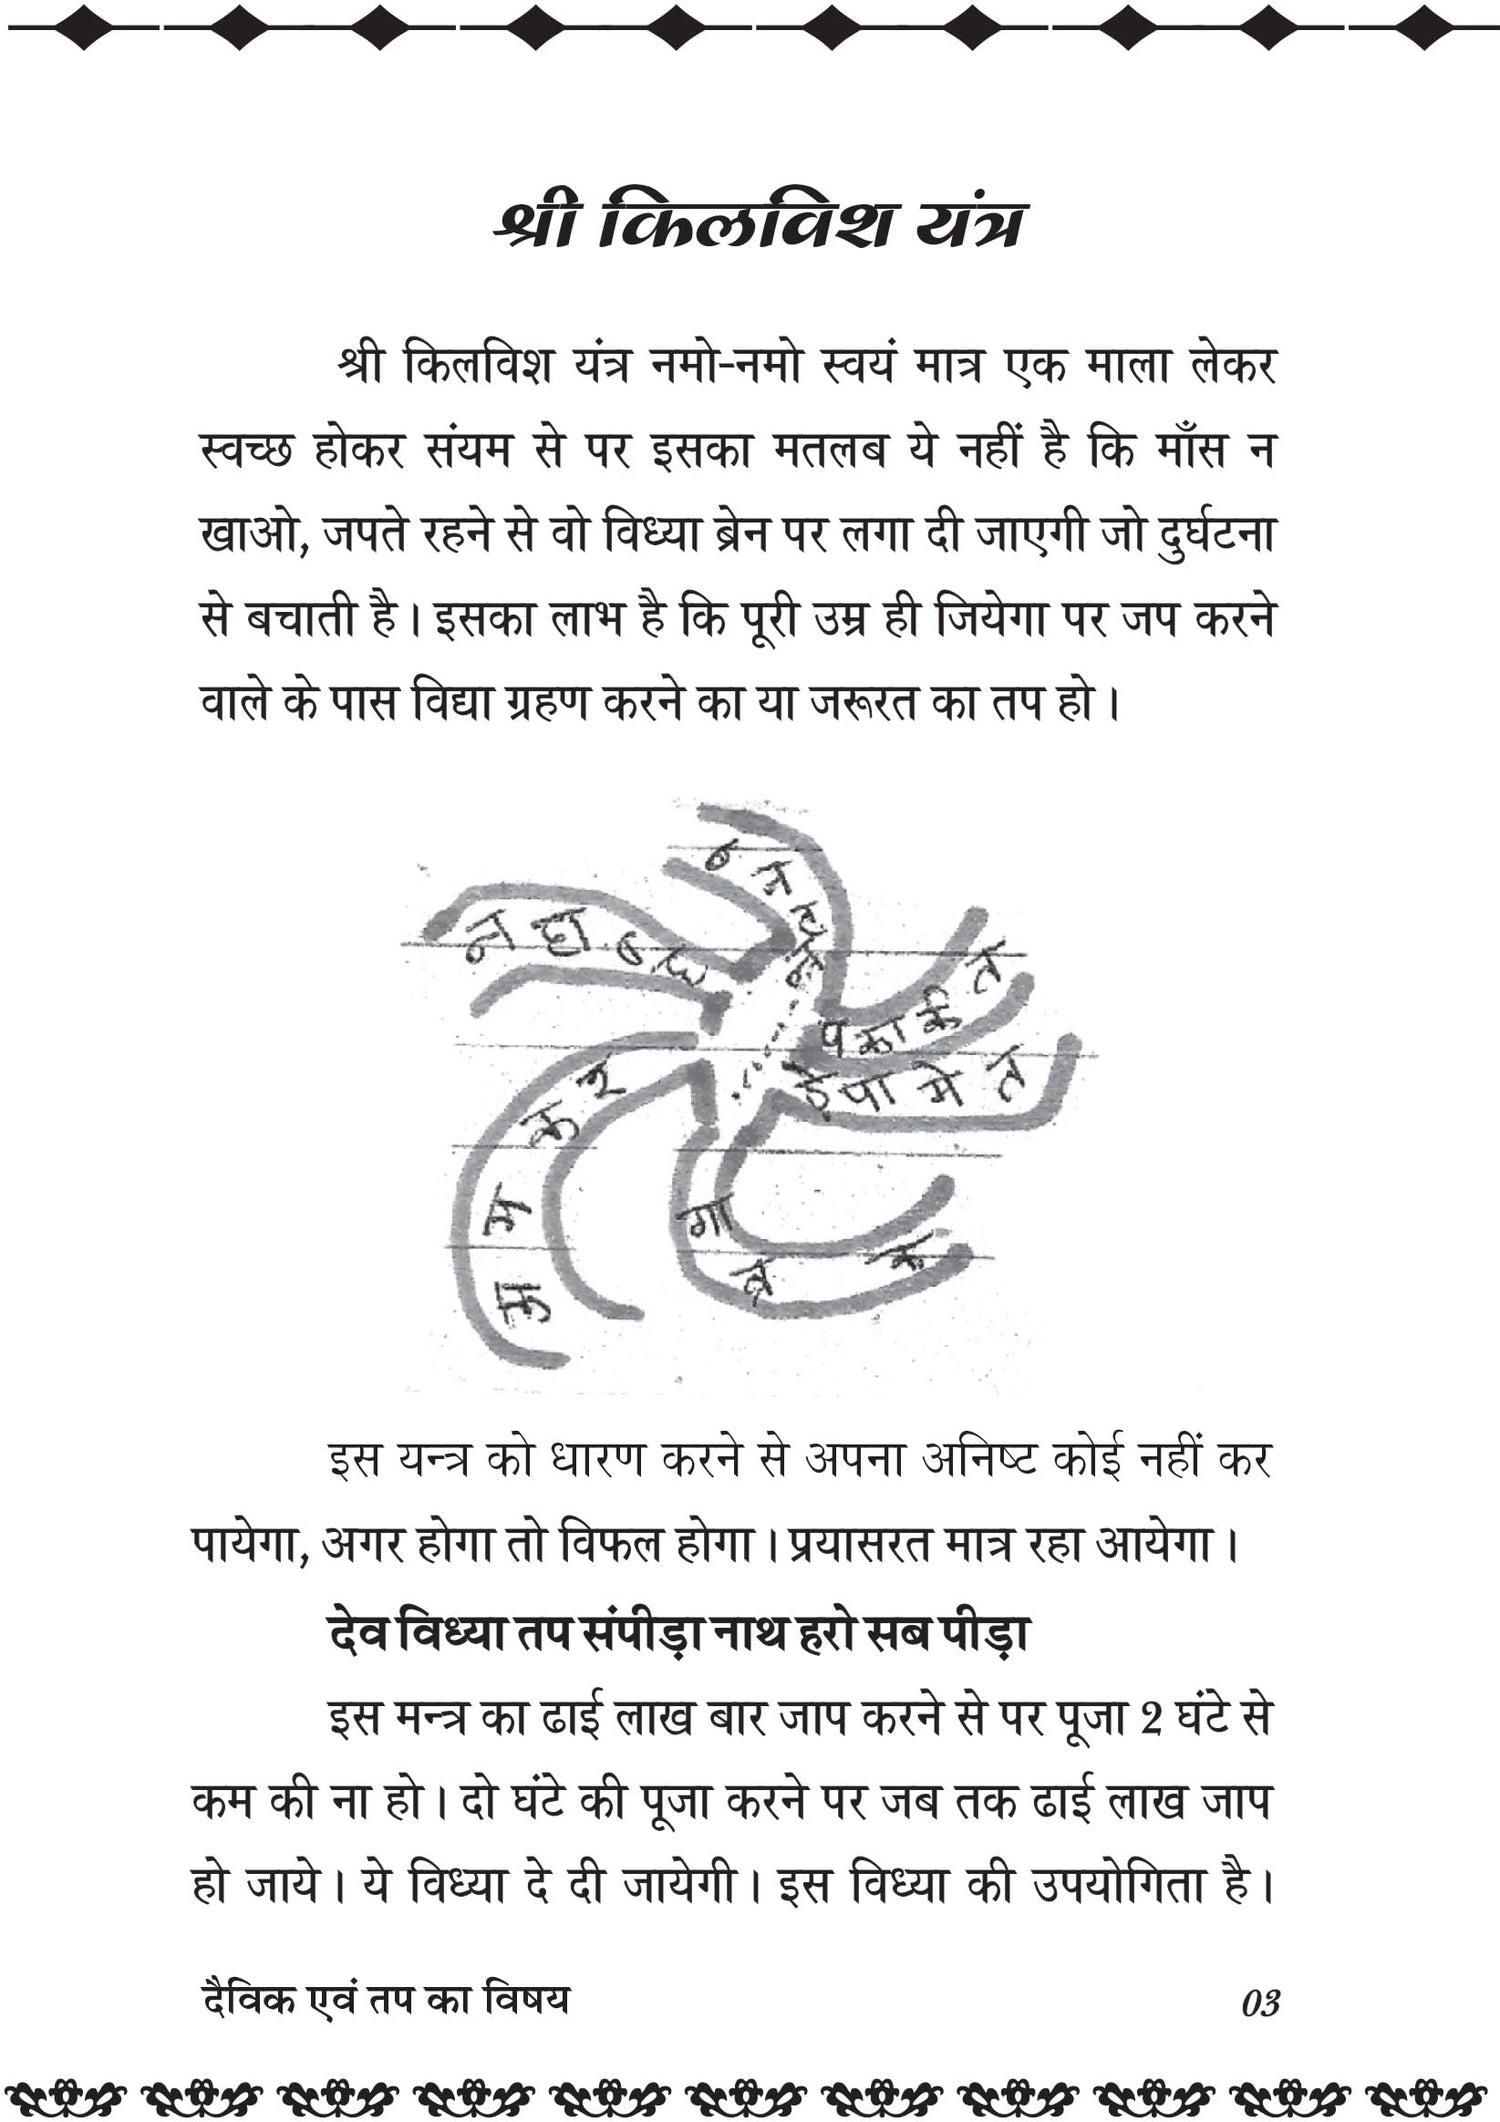 श्री किलविश यंत्र
श्री किलविश यंत्र नमो-नमो स्वयं मात्र एक माला लेकर
स्वच्छ होकर संयम से पर इसका मतलब ये नहीं है कि माँस न
खाओ, जपते रहने से वो विध्या ब्रेन पर लगा दी जाएगी जो दुर्घटना
से बचाती है। इसका लाभ है कि पूरी उम्र ही जियेगा पर जप करने
वाले के पास विद्या ग्रहण करने का या जरूरत का तप हो।
प का की त
पा मे त
क र
म
गा
क
इस यन्त्र को धारण करने से अपना अनिष्ट कोई नहीं कर
पायेगा, अगर होगा तो विफल होगा। प्रयासरत मात्र रहा आयेगा।
देव विध्या तप संपीड़ा नाथ हरो सब पीड़ा
इस मन्त्र का ढाई लाख बार जाप करने से पर पूजा 2 घंटे से
कम की ना हो। दो घंटे की पूजा करने पर जब तक ढाई लाख जाप
हो जाये। ये विध्या दे दी जायेगी। इस विध्या की उपयोगिता है।
दैविक एवं तप का विषय 03